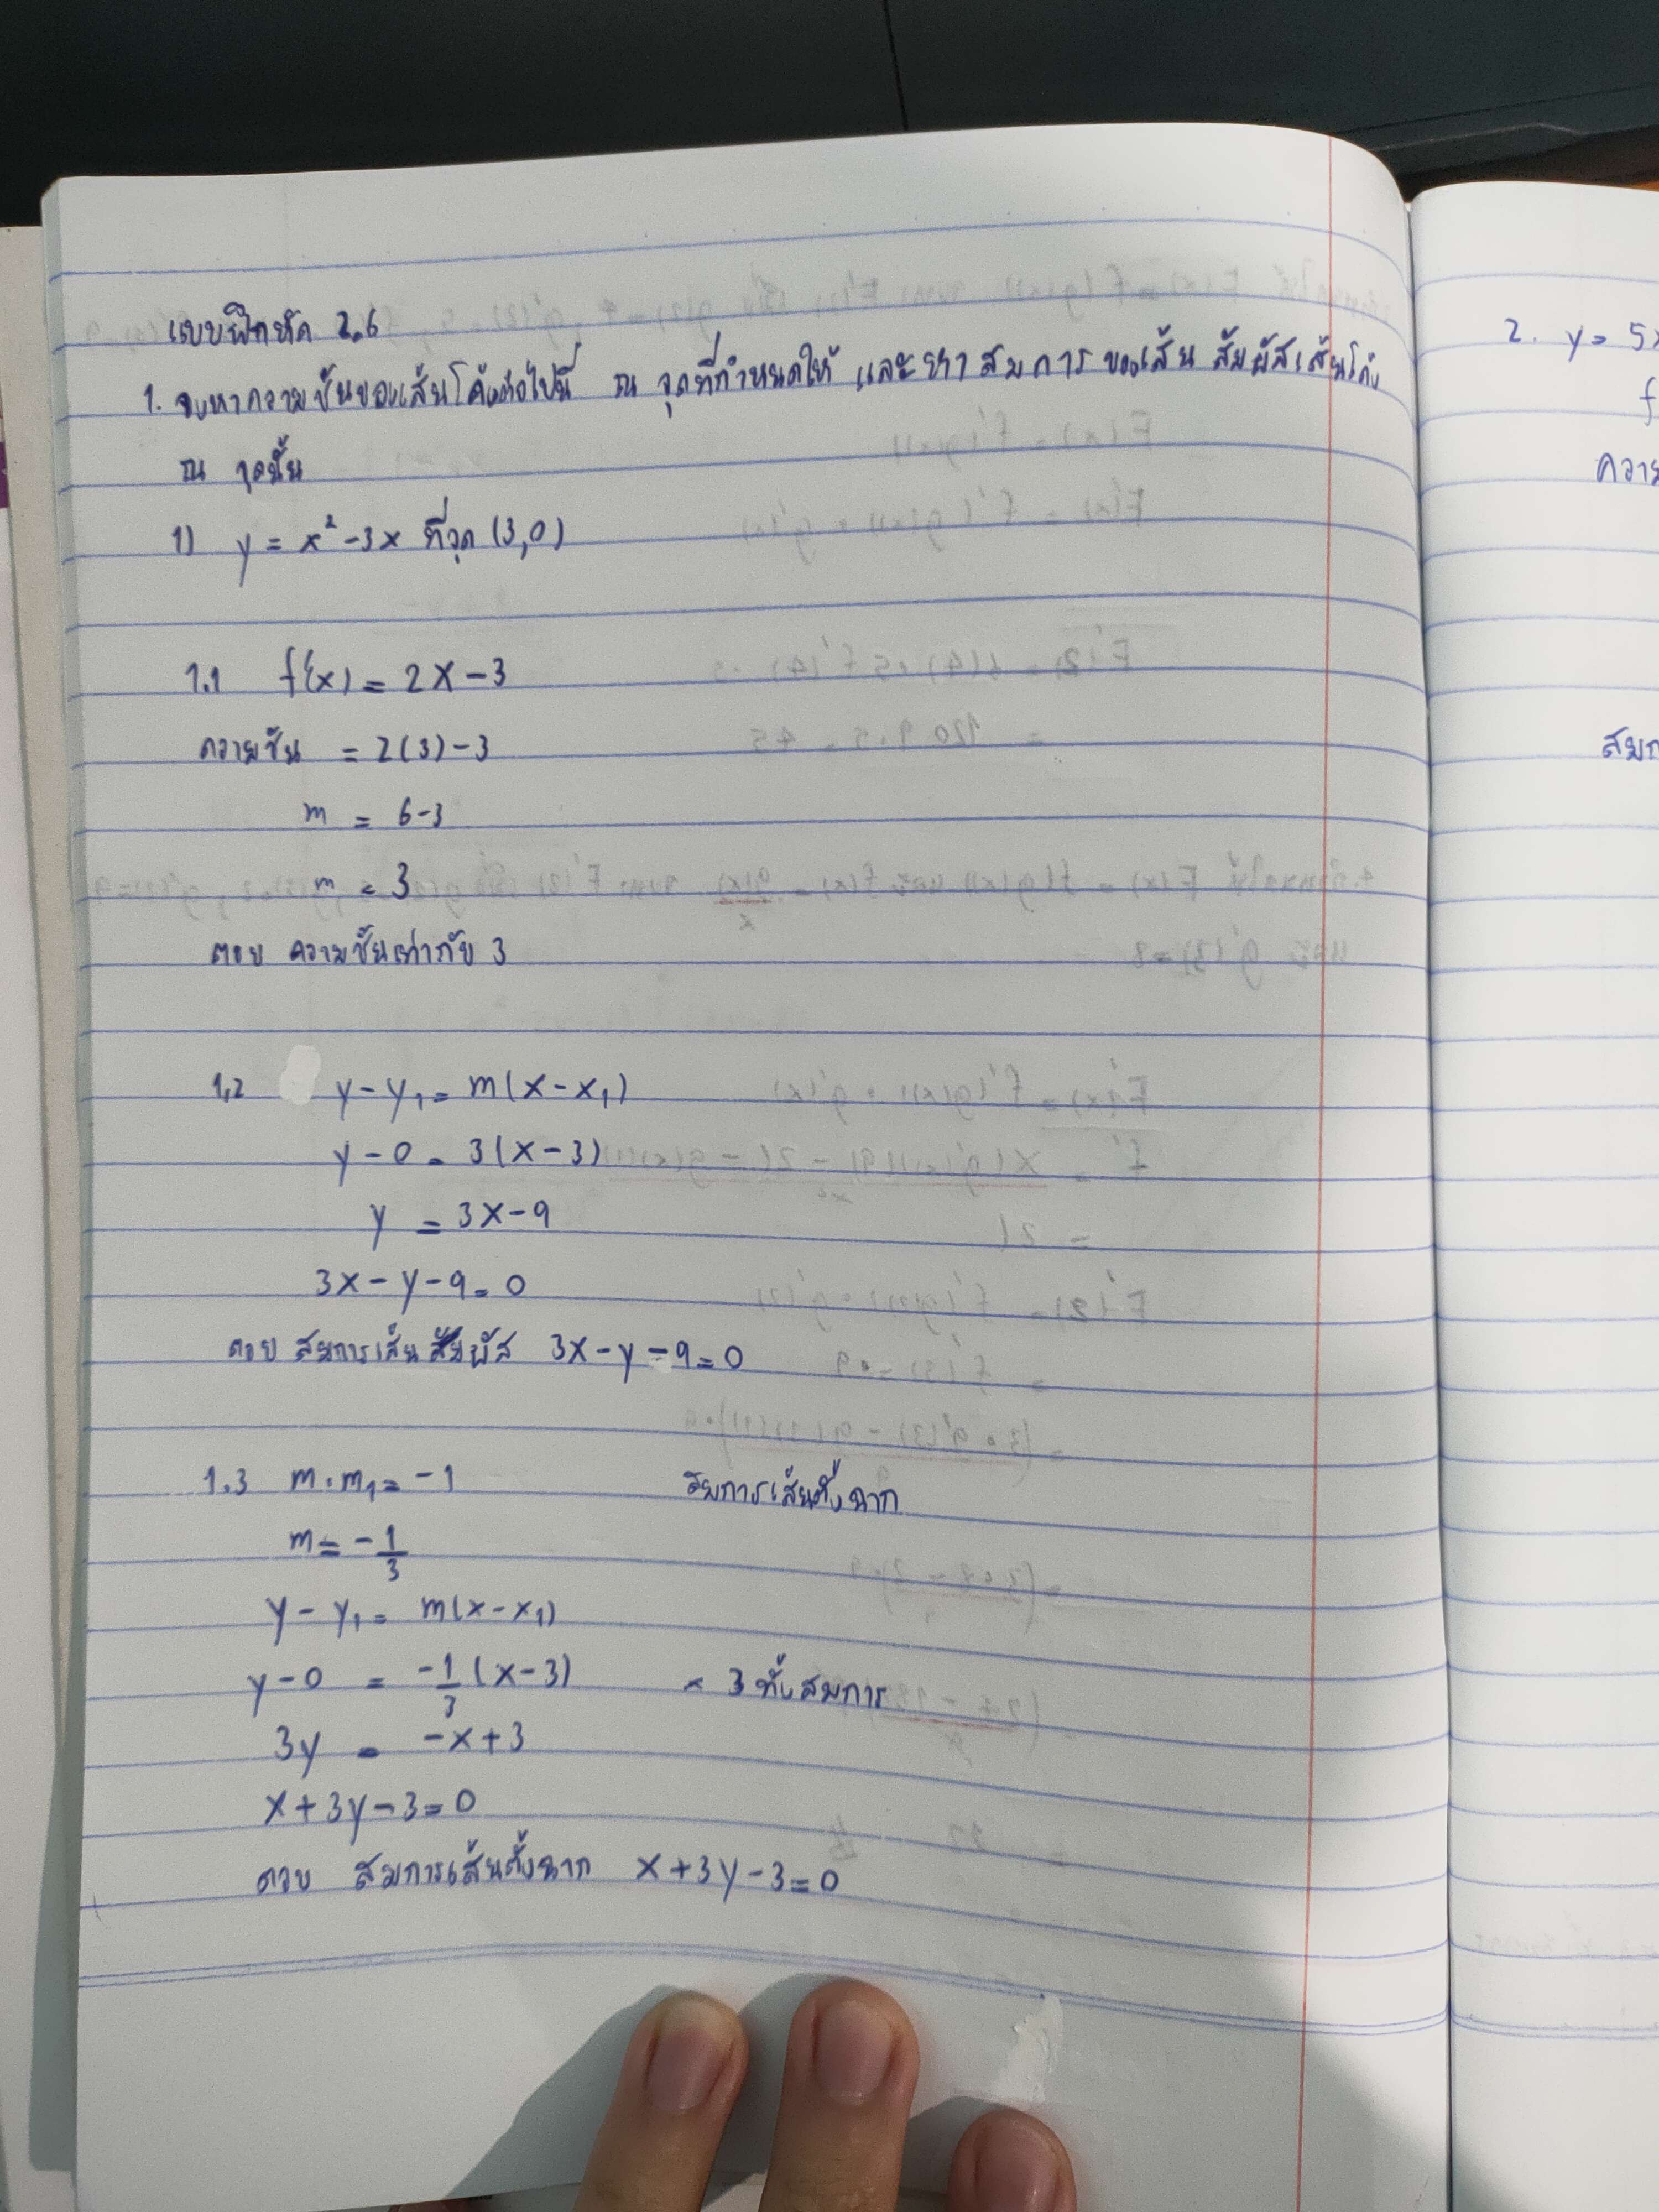 แบบฝึกหัด 2.6
1. จงหาความชันของเส้นโค้งต่อไปนี้ ณ จุดที่กำหนดให้ และหาสมการของเส้นสัมผัสเส้นโค้ง
ณ จุดนั้น
1) y = x² - 3x ที่จุด (3,0)
1.1 f'(x) = 2x - 3
ความชัน = 2(3) - 3
m = 6 - 3
m = 3
ตอบ ความชันเท่ากับ 3
1.2 y - y₁ = m(x - x₁)
y - 0 = 3(x - 3)
y = 3x - 9
3x - y - 9 = 0
ตอบ สมการเส้นสัมผัส 3x - y - 9 = 0
1.3 m·m₁ = -1 สมการเส้นตั้งฉาก
m = -1/3
y - y₁ = m(x - x₁)
y - 0 = -1/3 (x - 3) × 3 ทั้งสมการ
3y = -x + 3
x + 3y - 3 = 0
ตอบ สมการเส้นตั้งฉาก x + 3y - 3 = 0
2. y = 5x
f